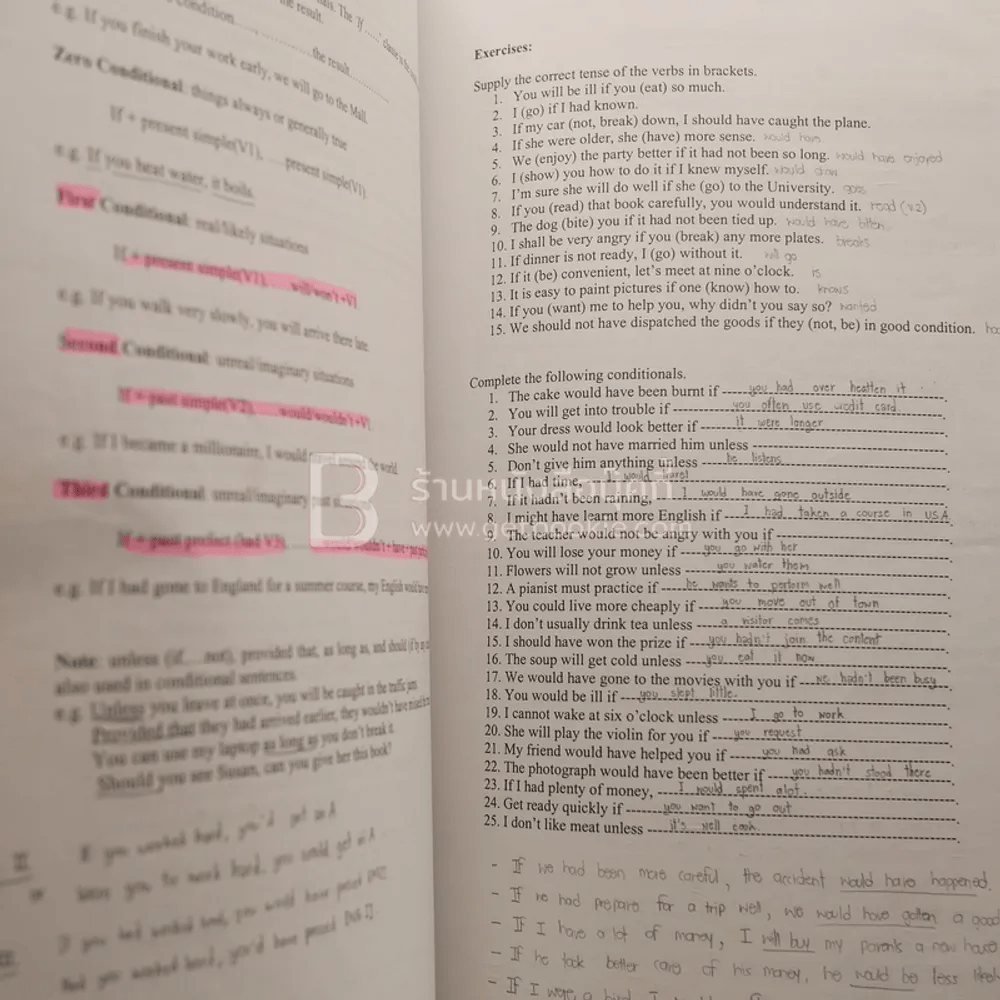 the result.
e.g. If you finish your work early, we will go to the Mall.
Zero Conditional: things always or generally true
If + present simple(V1), ....present simple(V1)
e.g. If you heat water, it boils.
First Conditional: real/likely situations
If + present simple(V1), ....will/won't+V1
e.g. If you walk very slowly, you will arrive there late.
Second Conditional: unreal/imaginary situations
If + past simple(V2), ....would/wouldn't+V1
e.g. If I became a millionaire, I would the world.
Third Conditional: unreal/imaginary past
If + past perfect (had V3)
e.g. If I had gone to England for a summer course, my English would
Note: unless (if....not), provided that, as long as, and should
also used in conditional sentences.
e.g. Unless you leave at once, you will be caught in the traffic jam.
Provided that they had arrived earlier, they wouldn't have
You can use my laptop as long as you don't break it.
Should you see Susan, can you give her this book?
Exercises:
Supply the correct tense of the verbs in brackets.
1. You will be ill if you (eat) so much.
2. I (go) if I had known.
3. If my car (not, break) down, I should have caught the plane.
4. If she were older, she (have) more sense. would have
5. We (enjoy) the party better if it had not been so long. would have enjoyed
6. I (show) you how to do it if I knew myself. would
7. I'm sure she will do well if she (go) to the University. goes
8. If you (read) that book carefully, you would understand it. read (v.2)
9. The dog (bite) you if it had not been tied up. would have bitten
10. I shall be very angry if you (break) any more plates. breaks
11. If dinner is not ready, I (go) without it. will go
12. If it (be) convenient, let's meet at nine o'clock. is
13. It is easy to paint pictures if one (know) how to. knows
14. If you (want) me to help you, why didn't you say so? wanted
15. We should not have dispatched the goods if they (not, be) in good condition.
Complete the following conditionals.
1. The cake would have been burnt if you had over heatten it.
2. You will get into trouble if you often use credit card.
3. Your dress would look better if it were longer.
4. She would not have married him unless
5. Don't give him anything unless he listens.
6. If I had time, I would travel
7. If it hadn't been raining, I would have gone outside.
8. I might have learnt more English if I had taken a course in USA.
9. The teacher would not be angry with you if
10. You will lose your money if you go with her.
11. Flowers will not grow unless you water them.
12. A pianist must practice if he wants to perform well.
13. You could live more cheaply if you move out of town.
14. I don't usually drink tea unless a visitor comes.
15. I should have won the prize if you hadn't join the content.
16. The soup will get cold unless you eat it now.
17. We would have gone to the movies with you if we hadn't been busy.
18. You would be ill if you slept little.
19. I cannot wake at six o'clock unless I go to work.
20. She will play the violin for you if you request.
21. My friend would have helped you if you had ask.
22. The photograph would have been better if you hadn't stood there.
23. If I had plenty of money, I would spent alot.
24. Get ready quickly if you want to go out.
25. I don't like meat unless it's well cook.
- If we had been more careful, the accident would have happened.
- If we had prepare for a trip well, we would have gotten a good
- If I have a lot of money, I will buy my parents a new house
- If he took better care of his money, he would be less likely
- If I were a bird, I
ร้านหนังสือบุ๊คกี้
www.getbookie.com